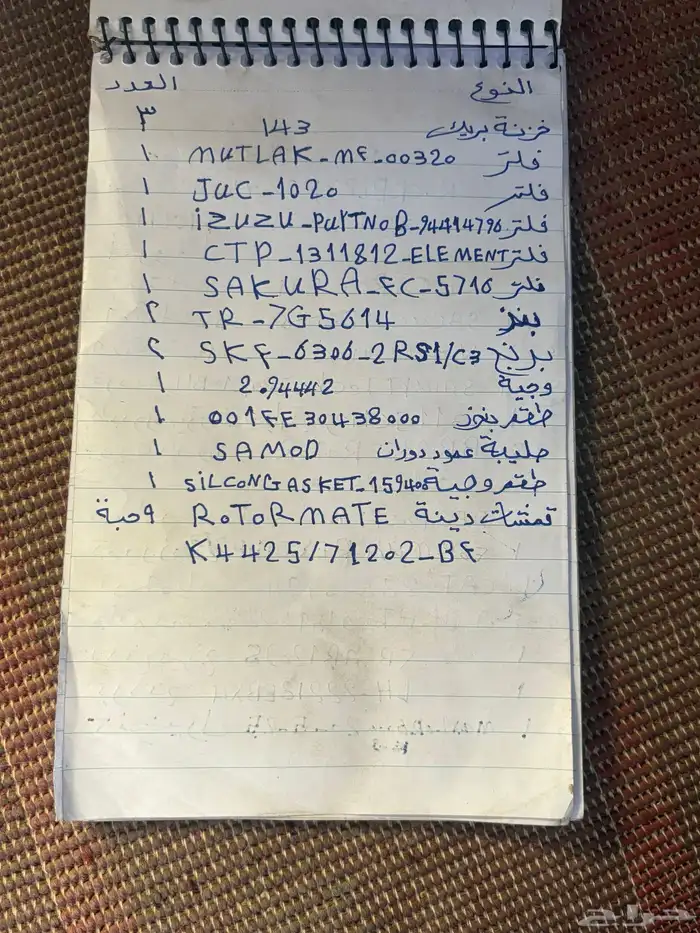 النوع العدد
خزينة بريك 143 ٣
فلتر MUTLAK-MF-00320 ١
فلتر JUC-1020 ١
فلتر iZUZU-PartNoB-94414796 ١
فلتر CTP-1311812-ELEMENT ١
فلتر SAKURA-FC-5716 ١
بنز TR-7G5614 ٢
برنج SKF-6306-2RS1/C3 ٢
وجية 2.94442 ١
طقم بنوز 001FE30438000 ١
صليبة عمود دوران SAMOD ١
طقم وجية SiLCONGASKET-159408 ١
قمشات دينة ROTORMATE ٩ حبة
K4425/71202-BF
حراج